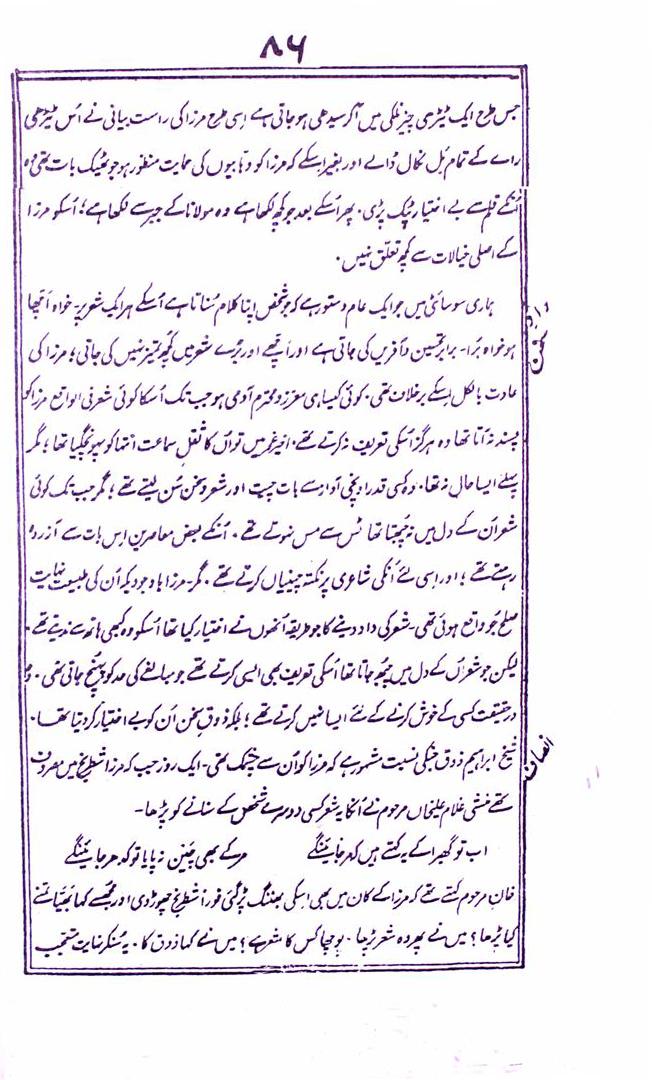 ۸۶
جس طرح ایک ٹیڑھی چیز نلکی میں آکر سیدھی ہوجاتی ہے اسی طرح مرزا کی راست بیانی نے اُس ٹیڑھی
راے کے تمام بل نکال ڈالے اور بغیر اسکے کہ مرزا کو وہابیوں کی حمایت منظور ہو جو ٹھیک بات تھی وہ
اُنکے قلم سے بے اختیار ٹپک پڑی۔ پھر اُسکے بعد جو کچھ لکھا ہے وہ مولانا کے جبر سے لکھا ہے؛ اُسکو مرزا
کے اصلی خیالات سے کچھ تعلق نہیں۔
ہماری سوسائٹی میں جو ایک عام دستور ہے کہ جو شخص اپنا کلام سُناتا ہے اُسکے ہر ایک شعر پر۔ خواہ اچھا
داد سخن
ہو خواہ بُرا۔ برابر تحسین و آفریں کی جاتی ہے اور اچھے اور بُرے شعر میں کچھ تمیز نہیں کی جاتی؛ مرزا کی
عادت بالکل اسکے برخلاف تھی۔ کوئی کیسا ہی معزز و محترم آدمی ہو جب تک اُسکا کوئی شعر فی الواقع مرزا کو
پسند نہ آتا تھا وہ ہرگز اُسکی تعریف نہ کرتے تھے۔ اخیر عمر میں تو اُن کا ثقلِ سماعت انتہا کو پہونچ گیا تھا؛ مگر
پہلے ایسا حال نہ تھا۔ وہ کسی قدر اونچی آواز سے بات چیت اور شعر و سخن سُن لیتے تھے؛ مگر جب تک کوئی
شعر اُن کے دل میں نہ چُبھتا تھا ٹس سے مس نہوتے تھے۔ اُنکے بعض معاصرین اِس بات سے آزردہ
رہتے تھے؛ اور اسی لئے اُنکی شاعری پر نکتہ چینیاں کرتے تھے۔ مگر۔ مرزا باوجودیکہ اُن کی طبیعت نہایت
صلح جو واقع ہوئی تھی۔ شعر کی داد دینے کا جو طریقہ اُنھوں نے اختیار کیا تھا اُسکو وہ کبھی ہاتھ سے ندیتے تھے۔
لیکن جو شعر اُن کے دل میں چبھ جاتا تھا اُسکی تعریف بھی ایسی کرتے تھے جو مبالغے کی حد کو پہنچ جاتی تھی۔ وہ
درحقیقت کسی کے خوش کرنے کے لئے ایسا نہیں کرتے تھے؛ بلکہ ذوقِ سخن اُن کو بے اختیار کردیتا تھا۔
انصاف
شیخ ابراہیم ذوق جنکی نسبت مشہور ہے کہ مرزا کو اُن سے چشمک تھی۔ ایک روز جب کہ مرزا شطرنج میں مصروف
تھے منشی غلام علیخاں مرحوم نے اُنکا یہ شعر کسی دوسرے شخص کے سنانے کو پڑھا۔
اب تو گھبرا کے یہ کہتے ہیں کہ مر جائینگے مر کے بھی چین نہ پایا تو کدھر جائینگے
خان مرحوم کہتے تھے کہ مرزا کے کان میں بھی اسکی بھنک پڑگئی فوراً شطرنج چھوڑدی اور مجھسے کہا بھیّا تمنے
کیا پڑھا؟ میں نے پھر وہ شعر پڑھا۔ پوچھا کس کا شعر ہے؟ میں نے کہا ذوق کا۔ یہ سُنکر نہایت متعجب